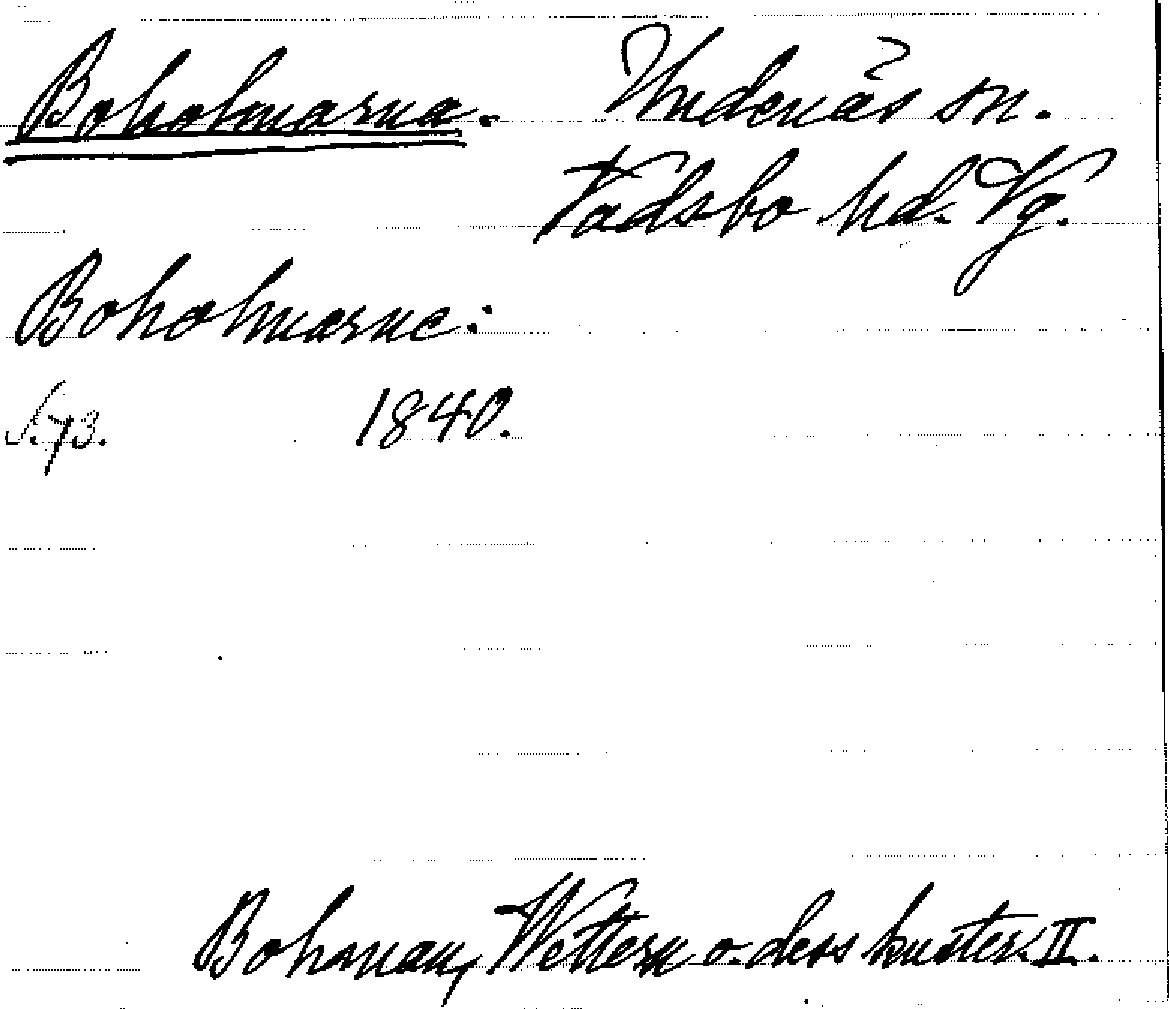 Boholmarna. Undenäs sn.
Vadsbo hd. Vg.
Boholmarne:
S. 73. 1840.
Bohman, Wettern o. dess kuster. II.